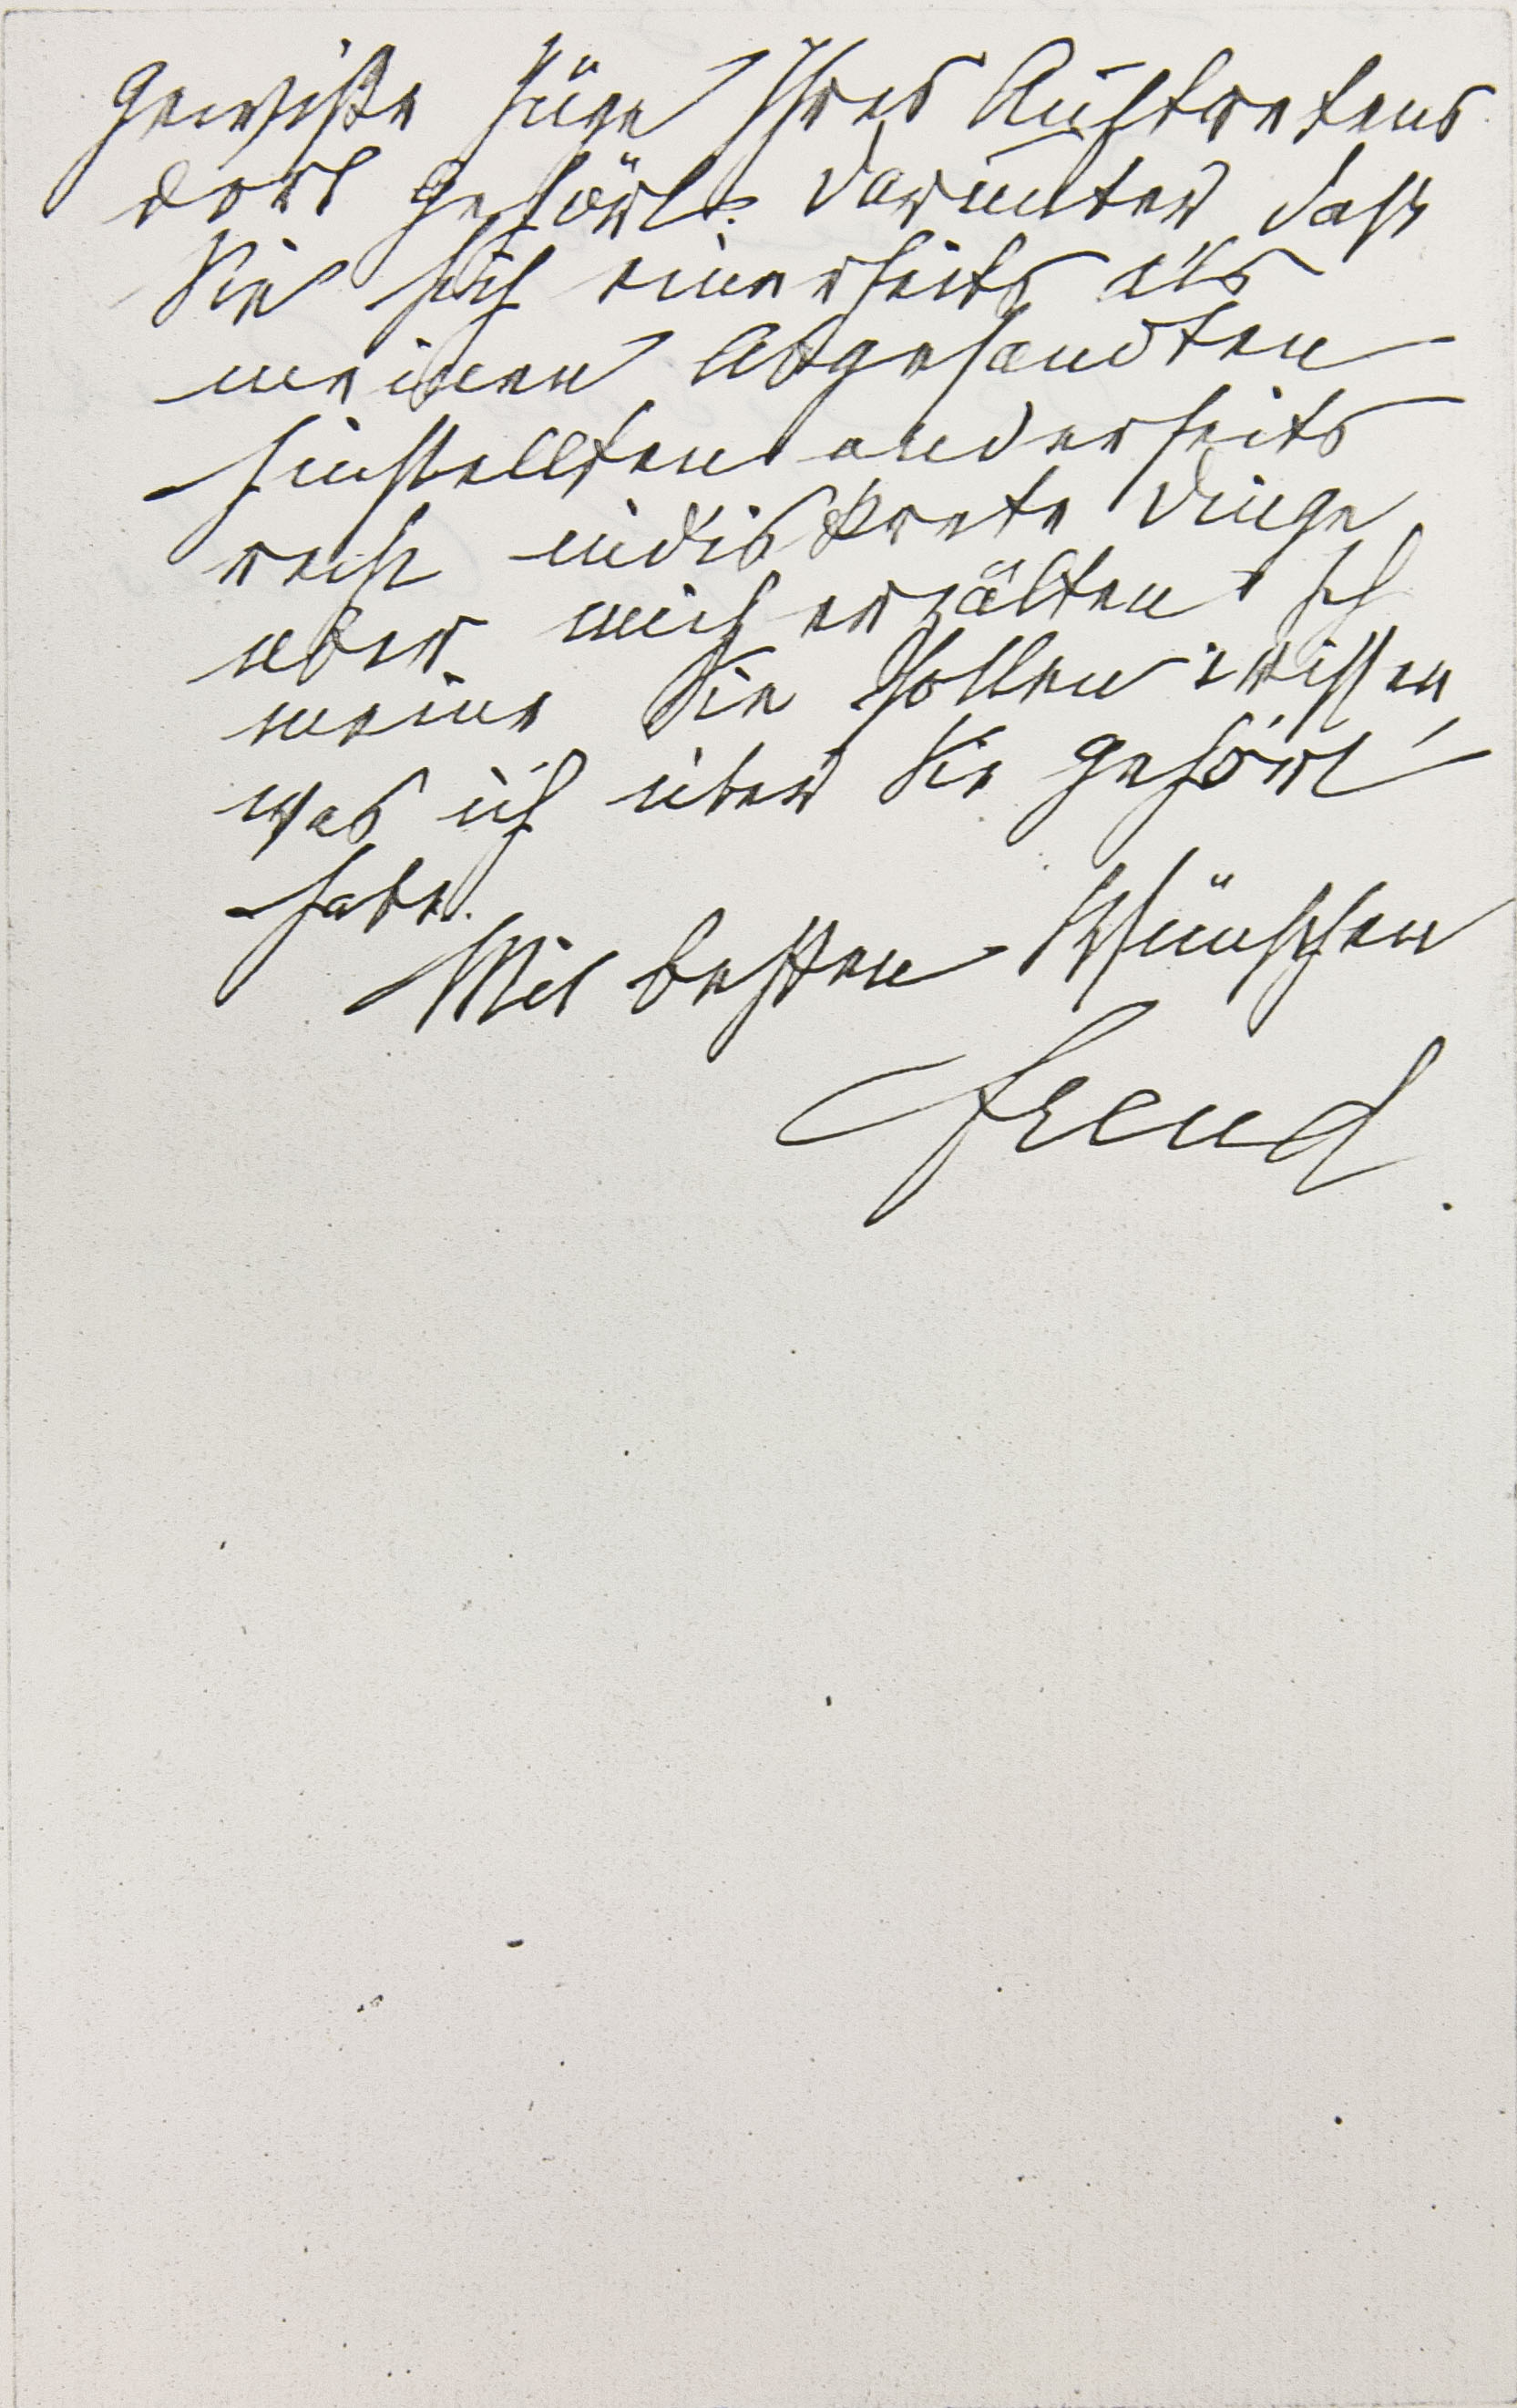 gewiße Züge Ihres Auftretens
dort gehört. darunter daß
Sie sich einerseits als
meinen Abgesandten
hinstellten anderseits
recht indiskrete Dinge
über mich erzälten. Ich
meine Sie sollen wissen,
was ich über Sie gehört
habe.
Mit besten Wünschen
Freud